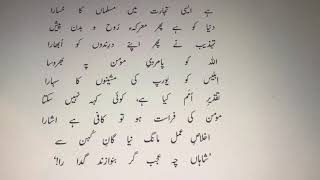 ہے ایسی تجارت میں مسلماں کا خسارا
دنیا کو ہے پھر معرکۂ روح و بدن پیش
تہذیب نے پھر اپنے درندوں کو اُبھارا
اللہ کو پامردیِ مومن پہ بھروسا
ابلیس کو یورپ کی مشینوں کا سہارا
تقدیرِ اُمم کیا ہے، کوئی کہہ نہیں سکتا
مومن کی فراست ہو تو کافی ہے اشارا
اخلاصِ عمل مانگ نیا گانِ کُہن سے
'شاہاں چہ عجب گر بنوازند گدا را!'